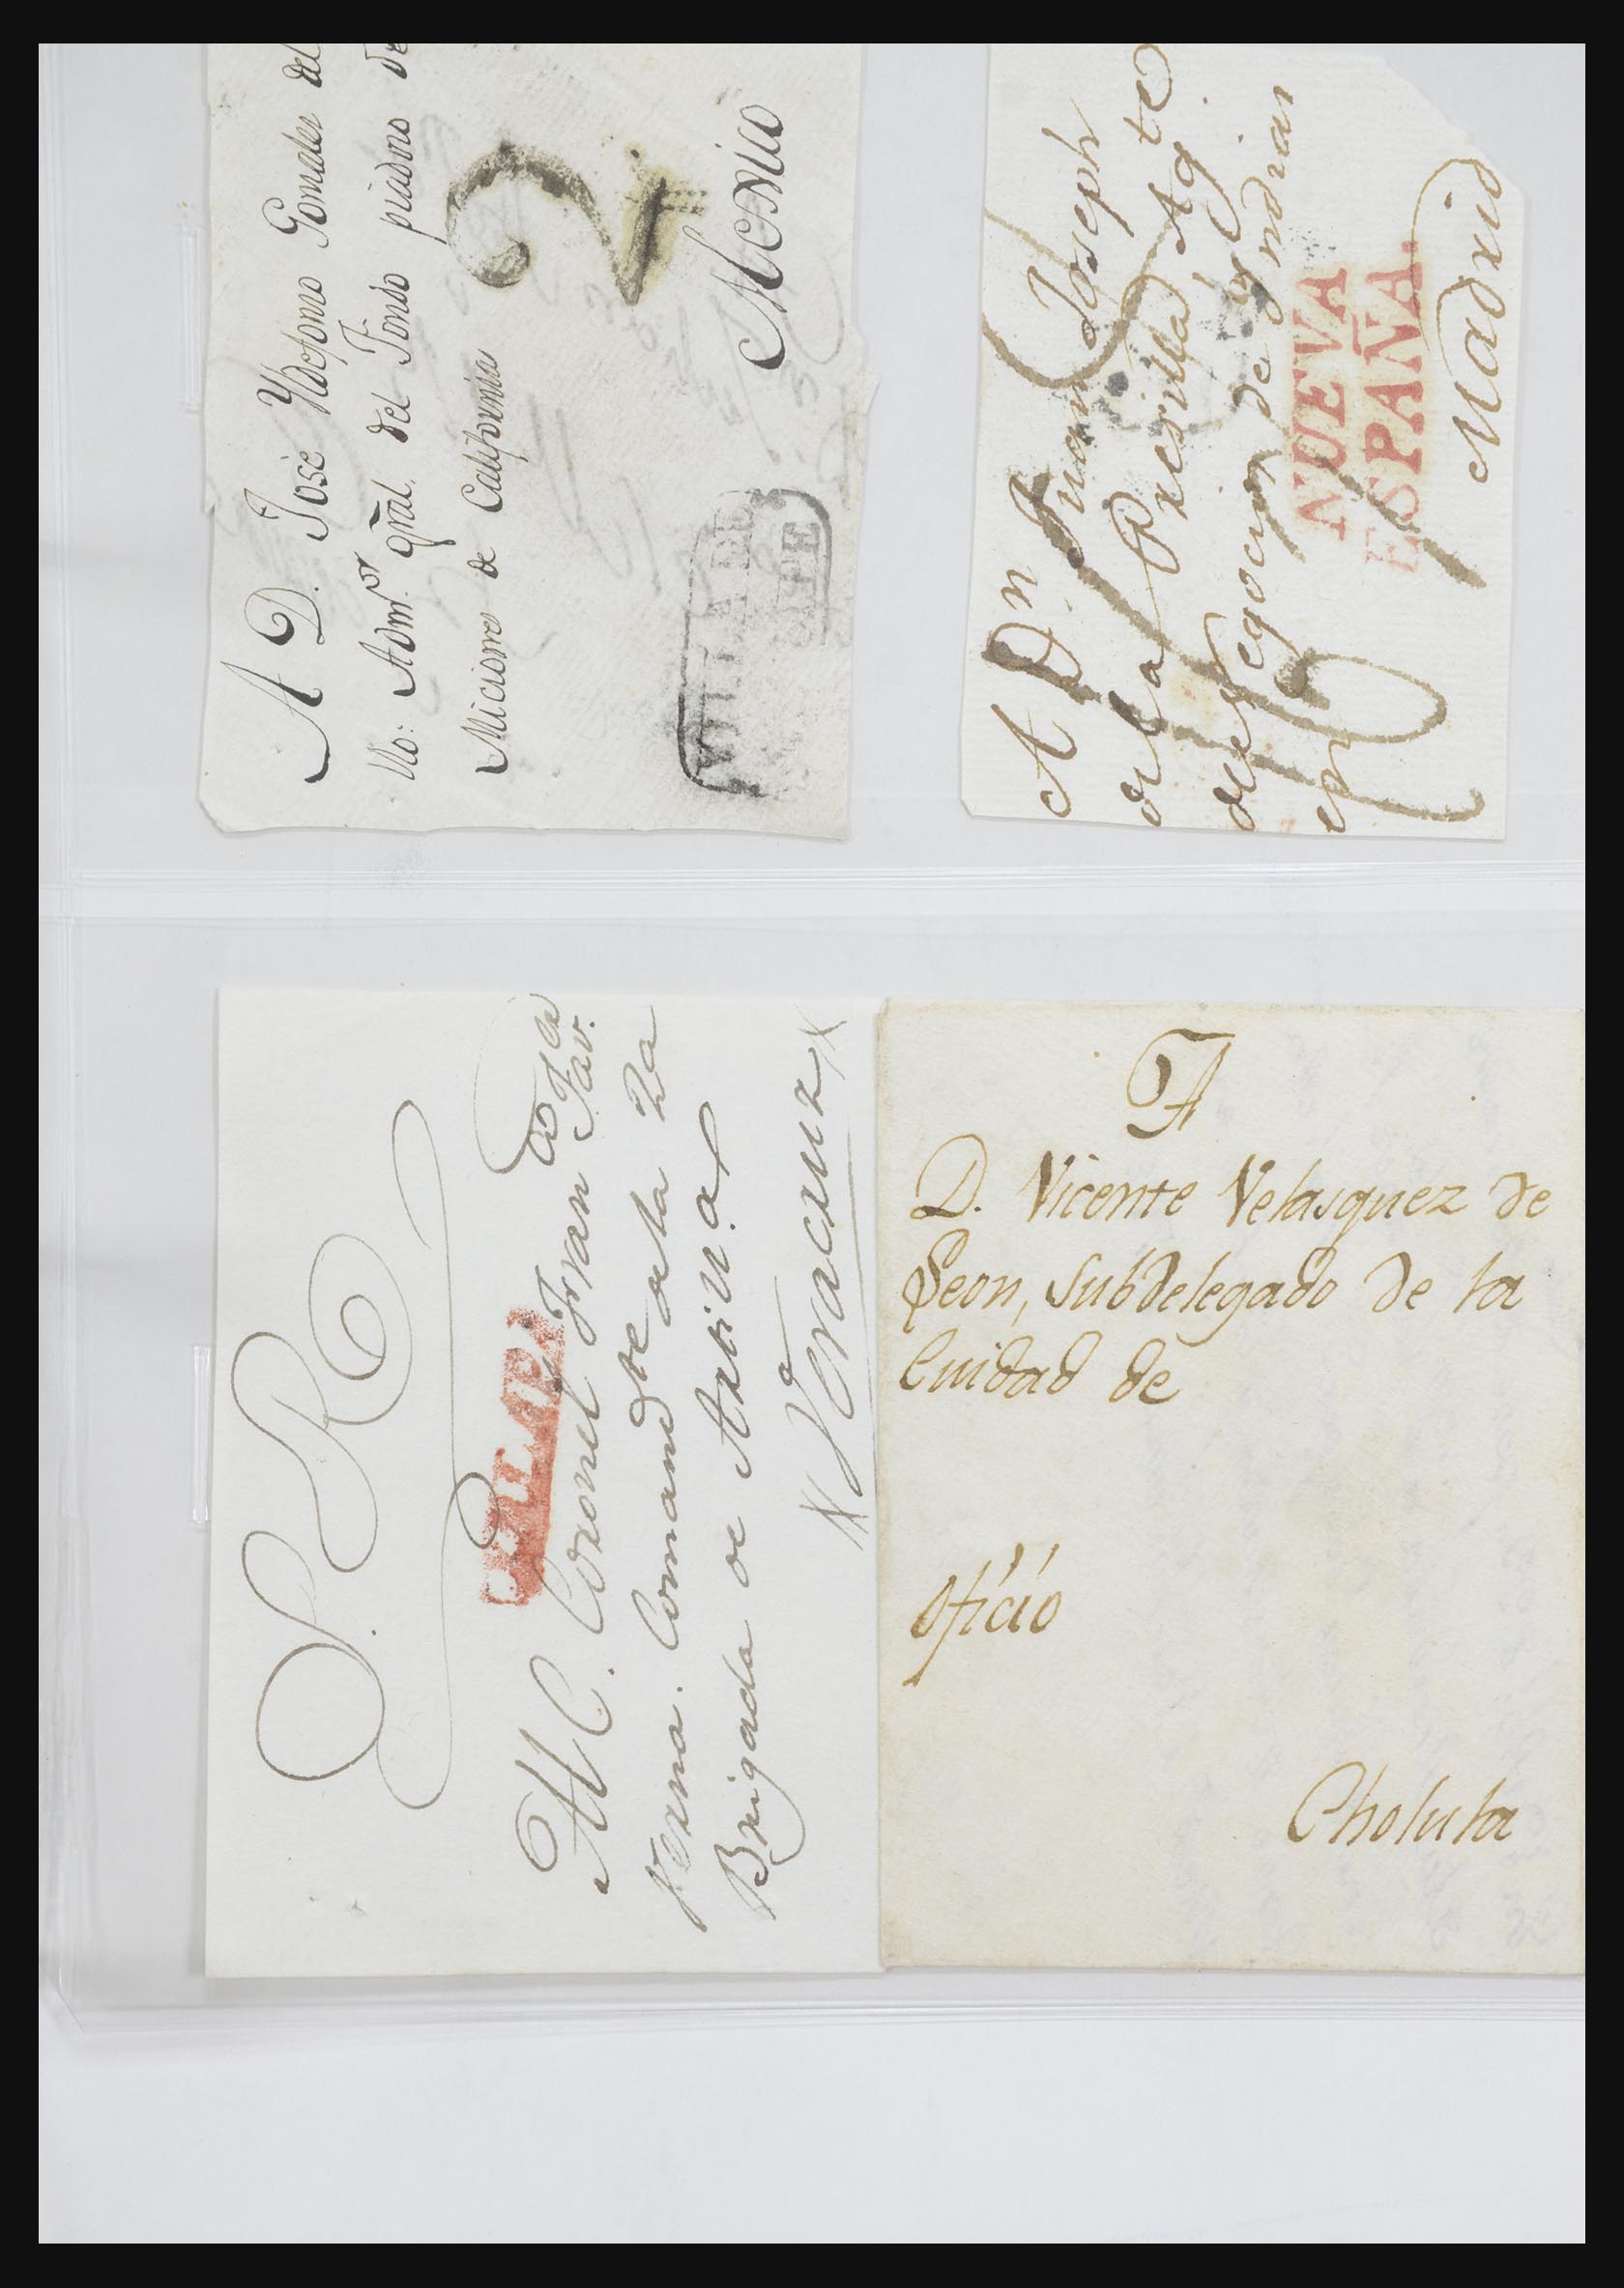 A D. José Yldefonso Gonzales del
Adm.or gral. del Fondo piadoso de
Miciones de California
2
Mexico
VILLA DE
A Dn. Juan Joseph
de la Presilla Ag.te
de Negocios de Yndias
en
NUEVA
ESPAÑA
Madrid
S. R
JALAPA
Al C. Coronel Fran.co Jav.
Berna. Comand.te de esta 2a
Brigada de Artill.a
Veracruz
A
D. Vicente Velasquez de
Leon, Subdelegado de la
Cuidad de
Oficio
Cholula